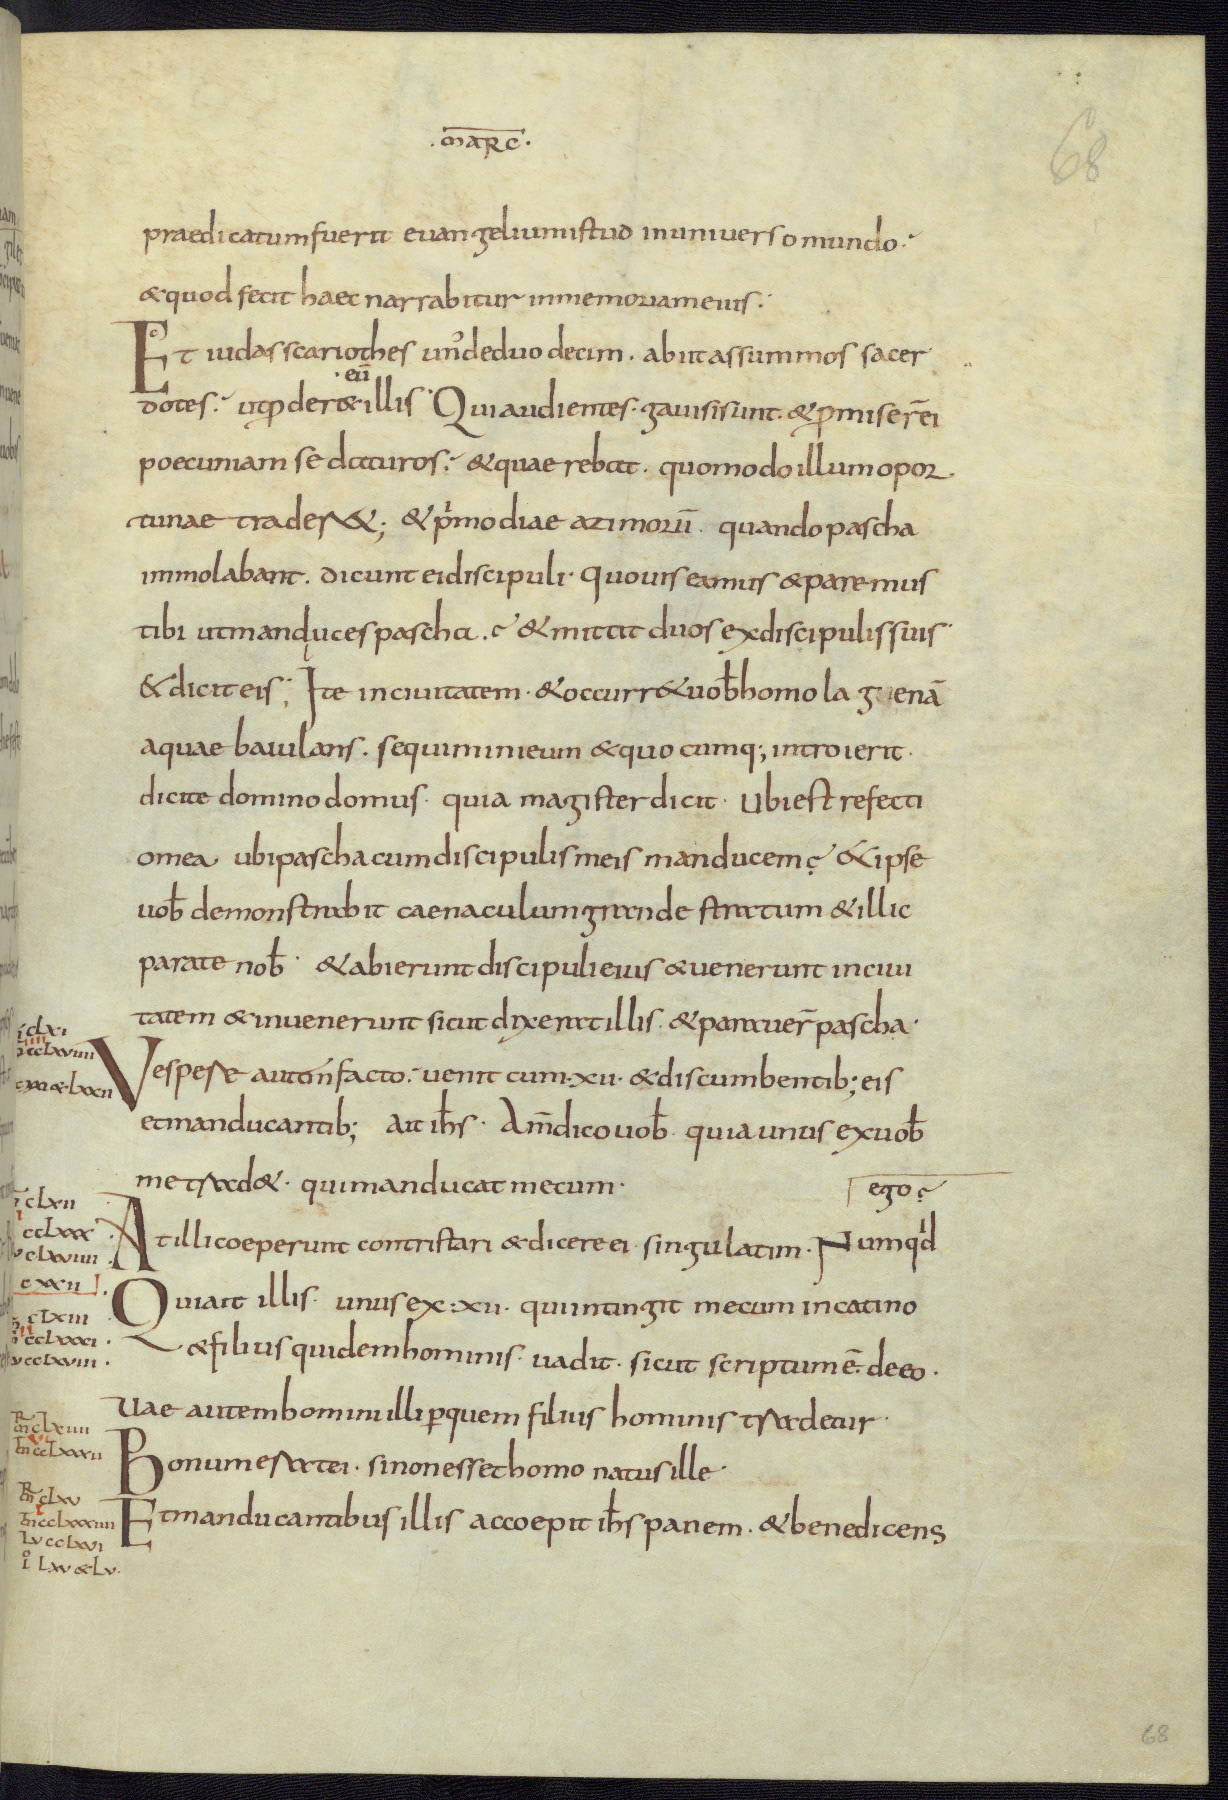 .marc̅.
68
praedicatum fuerit euangelium istud in uniuerso mundo.
& quod fecit haec narrabitur in memoriam eius.
Et iudas scariothes unꝰ de duodecim . abiit as summos sacer
eū
dotes . ut ꝓder& illis . Qui audientes . gauisi sunt . & ꝓmiser̄ ei
poecuniam se daturos . & quaerebat . quomodo illum opor
tunae trader&; & pimo diae azimorū . quando pascha
immolabant . dicunt ei discipuli . quo uis eamus & paremus
tibi ut manduces pascha . & mittit duos ex discipulis suis
& dicit eis ; Ite in ciuitatem . & occurr& uob̄ homo laguenā
aquae baiulans . sequimini eum & quocumq; introierit .
dicite domino domus . quia magister dicit . Ubi est refecti
o mea ubi pascha cum discipulis meis manducem & ipse
uob̄ demonstrabit caenaculum grande stratum & illic
parate nob̄ . & abierunt discipuli eius & uenerunt in ciui
tatem & inuenerunt sicut dixerat illis . & parauer̄ pascha .
clxi
cclxviiii
Vespere autem facto . uenit cum . xii . & discumbentib; eis
et manducantib; ait ih̅s . Am̄ dico uob̄ . quia unus ex uob̄
me trad& . qui manducat mecum .
ego
clxii
At illi coeperunt contristari & dicere ei . singulatim . Numqid
cclxxx
clxviiii
cxxii
Qui ait illis . unus ex . xii . qui intingit mecum in catino
clxiii
cclxxxi
& filius quidem hominis . uadit . sicut scriptum ē . de eo .
cclxviii
Uae autem homini illi ꝑ quem filius hominis tradetur .
clxiiii
cclxxxii
Bonum erat ei . si non esset homo natus ille .
clxv
cclxxxiiii
Et manducantibus illis accoepit ih̅s panem . & benedicens
Lv cclxvi
lxv & lv .
68